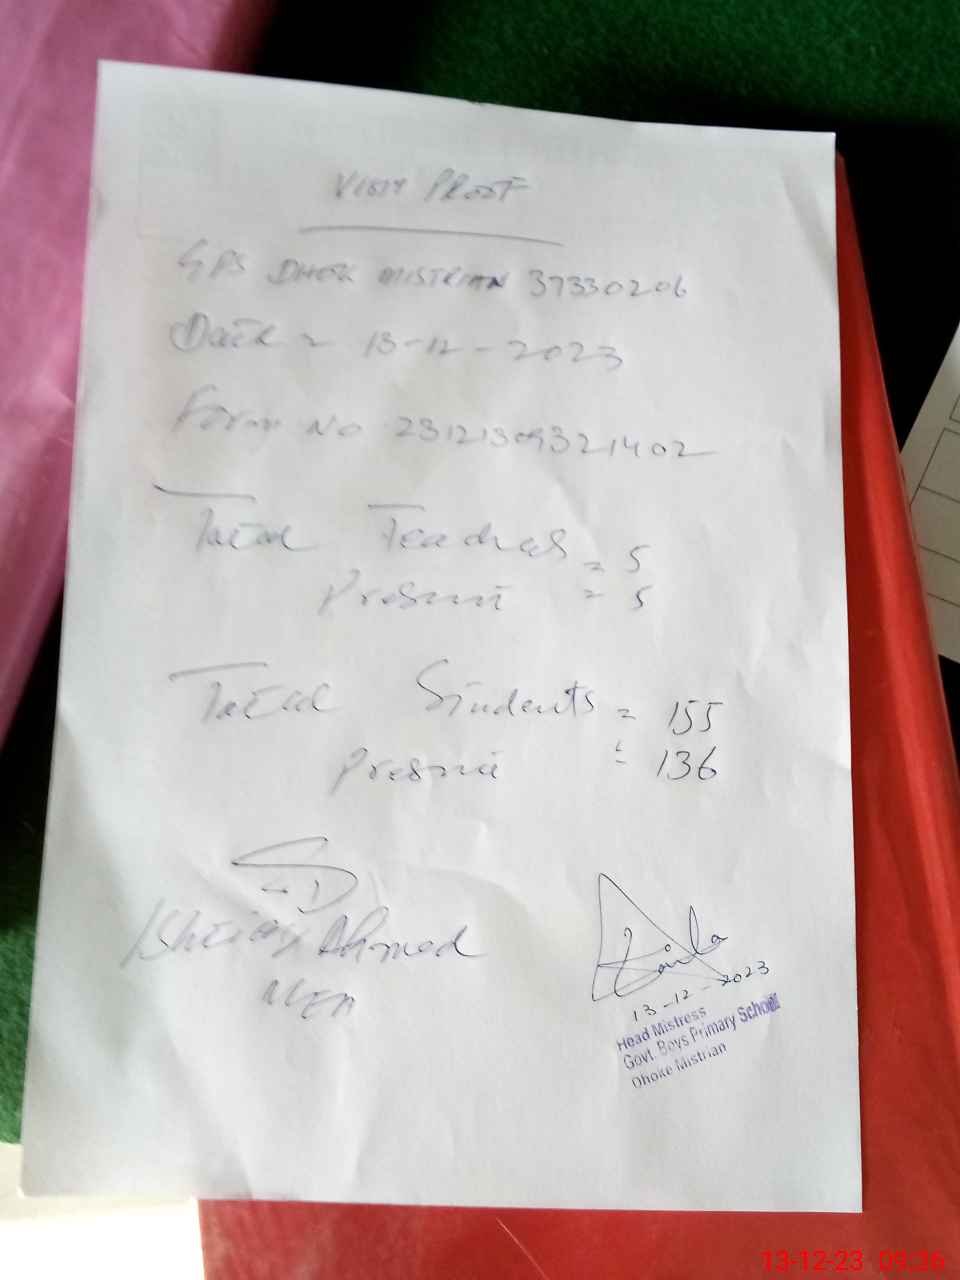 VISIT PROOF
GPS DHOK MISTRIAN 37330206
Date = 13-12-2023
Form No 23121309321402
Total Teachers = 5
Present = 5
Total Students = 155
Present = 136
SD
Ahmed
MEA
13-12-2023
Head Mistress
Govt. Boys Primary School
Dhoke Mistrian
13-12-23 09:36